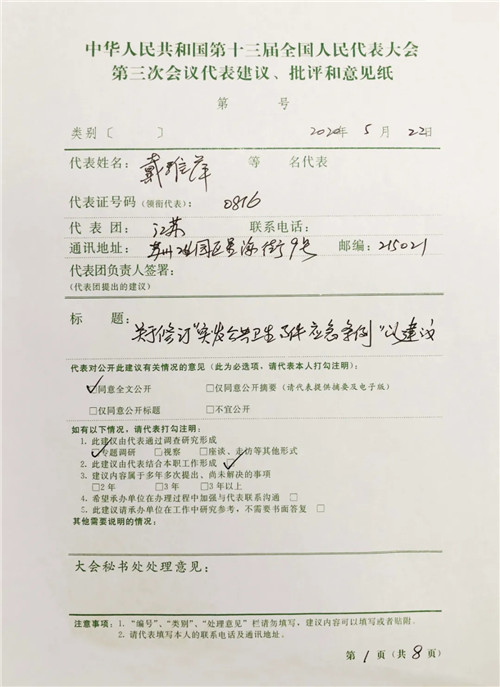 中华人民共和国第十三届全国人民代表大会
第三次会议代表建议、批评和意见纸
第 号
类别〔 〕 2020年 5 月 22日
代表姓名： 戴雅萍 等 名代表
代表证号码（领衔代表）： 0816
代 表 团： 江苏 联系电话：
通讯地址： 苏州 园区星海街9号 邮编：215021
代表团负责人签署：
（代表团提出的建议）
标 题： 关于修订“突发公共卫生事件应急条例”的建议
代表对公开此建议有关情况的意见（此为必选项，请代表本人打勾注明）：
☑同意全文公开 □仅同意公开摘要（请代表提供摘要及电子版）
□仅同意公开标题 □不宜公开
如有以下情况，请代表打勾注明：
1. 此建议由代表通过调查研究形成
☑专题调研 □视察 □座谈、走访等其他形式
2. 此建议由代表结合本职工作形成 ☑
3. 建议内容属于多年多次提出、尚未解决的事项
□2 年 □3 年 □3 年以上
4. 希望承办单位在办理过程中加强与代表联系沟通 □
5. 此建议请承办单位在工作中研究参考，不需要书面答复 □
其他需要说明的情况：
大会秘书处处理意见：
注意事项：1. “编号”、“类别”、“处理意见”栏请勿填写，建议内容可以填写或者贴附。
2. 请代表填写本人的联系电话及通讯地址。
第 1 页（共 8 页）